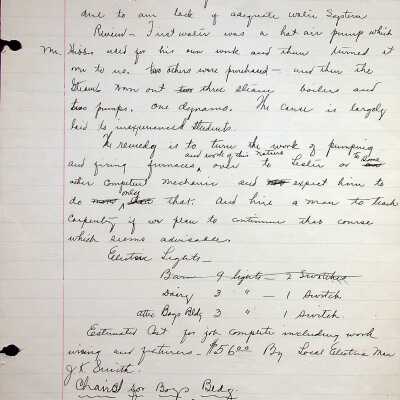 due to an lack of adequate water system
Review - First water was a hot air pump which
Mr. used for his own work and then turned it
on to us. two others were purchased - and then the
Steam worn out two three steam boilers and
two pumps. One dynamo. The cause is largely
laid to inexperienced students.
The remedy is to turn the work of pumping
and work of this nature to some
and firing furnaces over to Lester or
other competent mechanic and not expect him to
only
do more than that. And hire a man to teach
Carpentry if we plan to continue this course
which seems advisable.
Electric Lights -
Barn 9 lights - 2 Switches
Dairy 3 " - 1 Switch
attic Boys Bldg 3 " - 1 Switch.
Estimated Cost for job complete including work
wiring and fixtures - $56.00 By Local Electric Man
J.K. Smith.
Chairs for Boys Bldg.